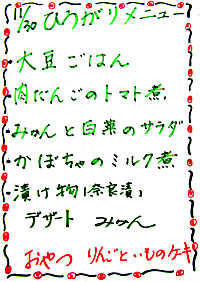 11/30 ひろがりメニュー
・大豆ごはん
・肉だんごのトマト煮
・みかんと白菜のサラダ
・かぼちゃのミルク煮
・漬け物(奈良漬)
デザート みかん
おやつ りんごといものケーキ